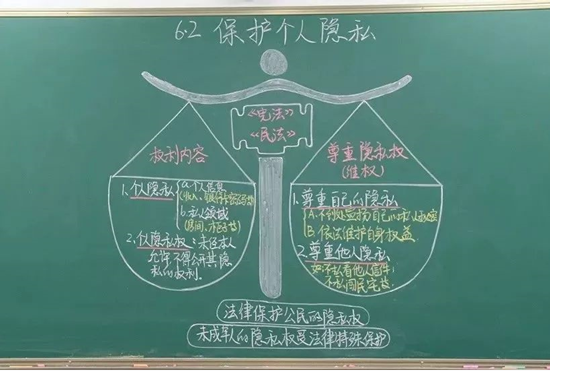 6.2 保护个人隐私
《宪法》
《民法》
权利内容
1.个人隐私
a.个人信息
b.私人领域
2.个人隐私权:未经本人
允许不得公开其隐
私的权利.
尊重隐私权
(维权)
1.尊重自己的隐私
B.依法维护自身权益.
2.尊重他人隐私
如:不私看他人信件;
不私闯民宅等.
法律保护公民的隐私权
未成年人的隐私权受法律特殊保护